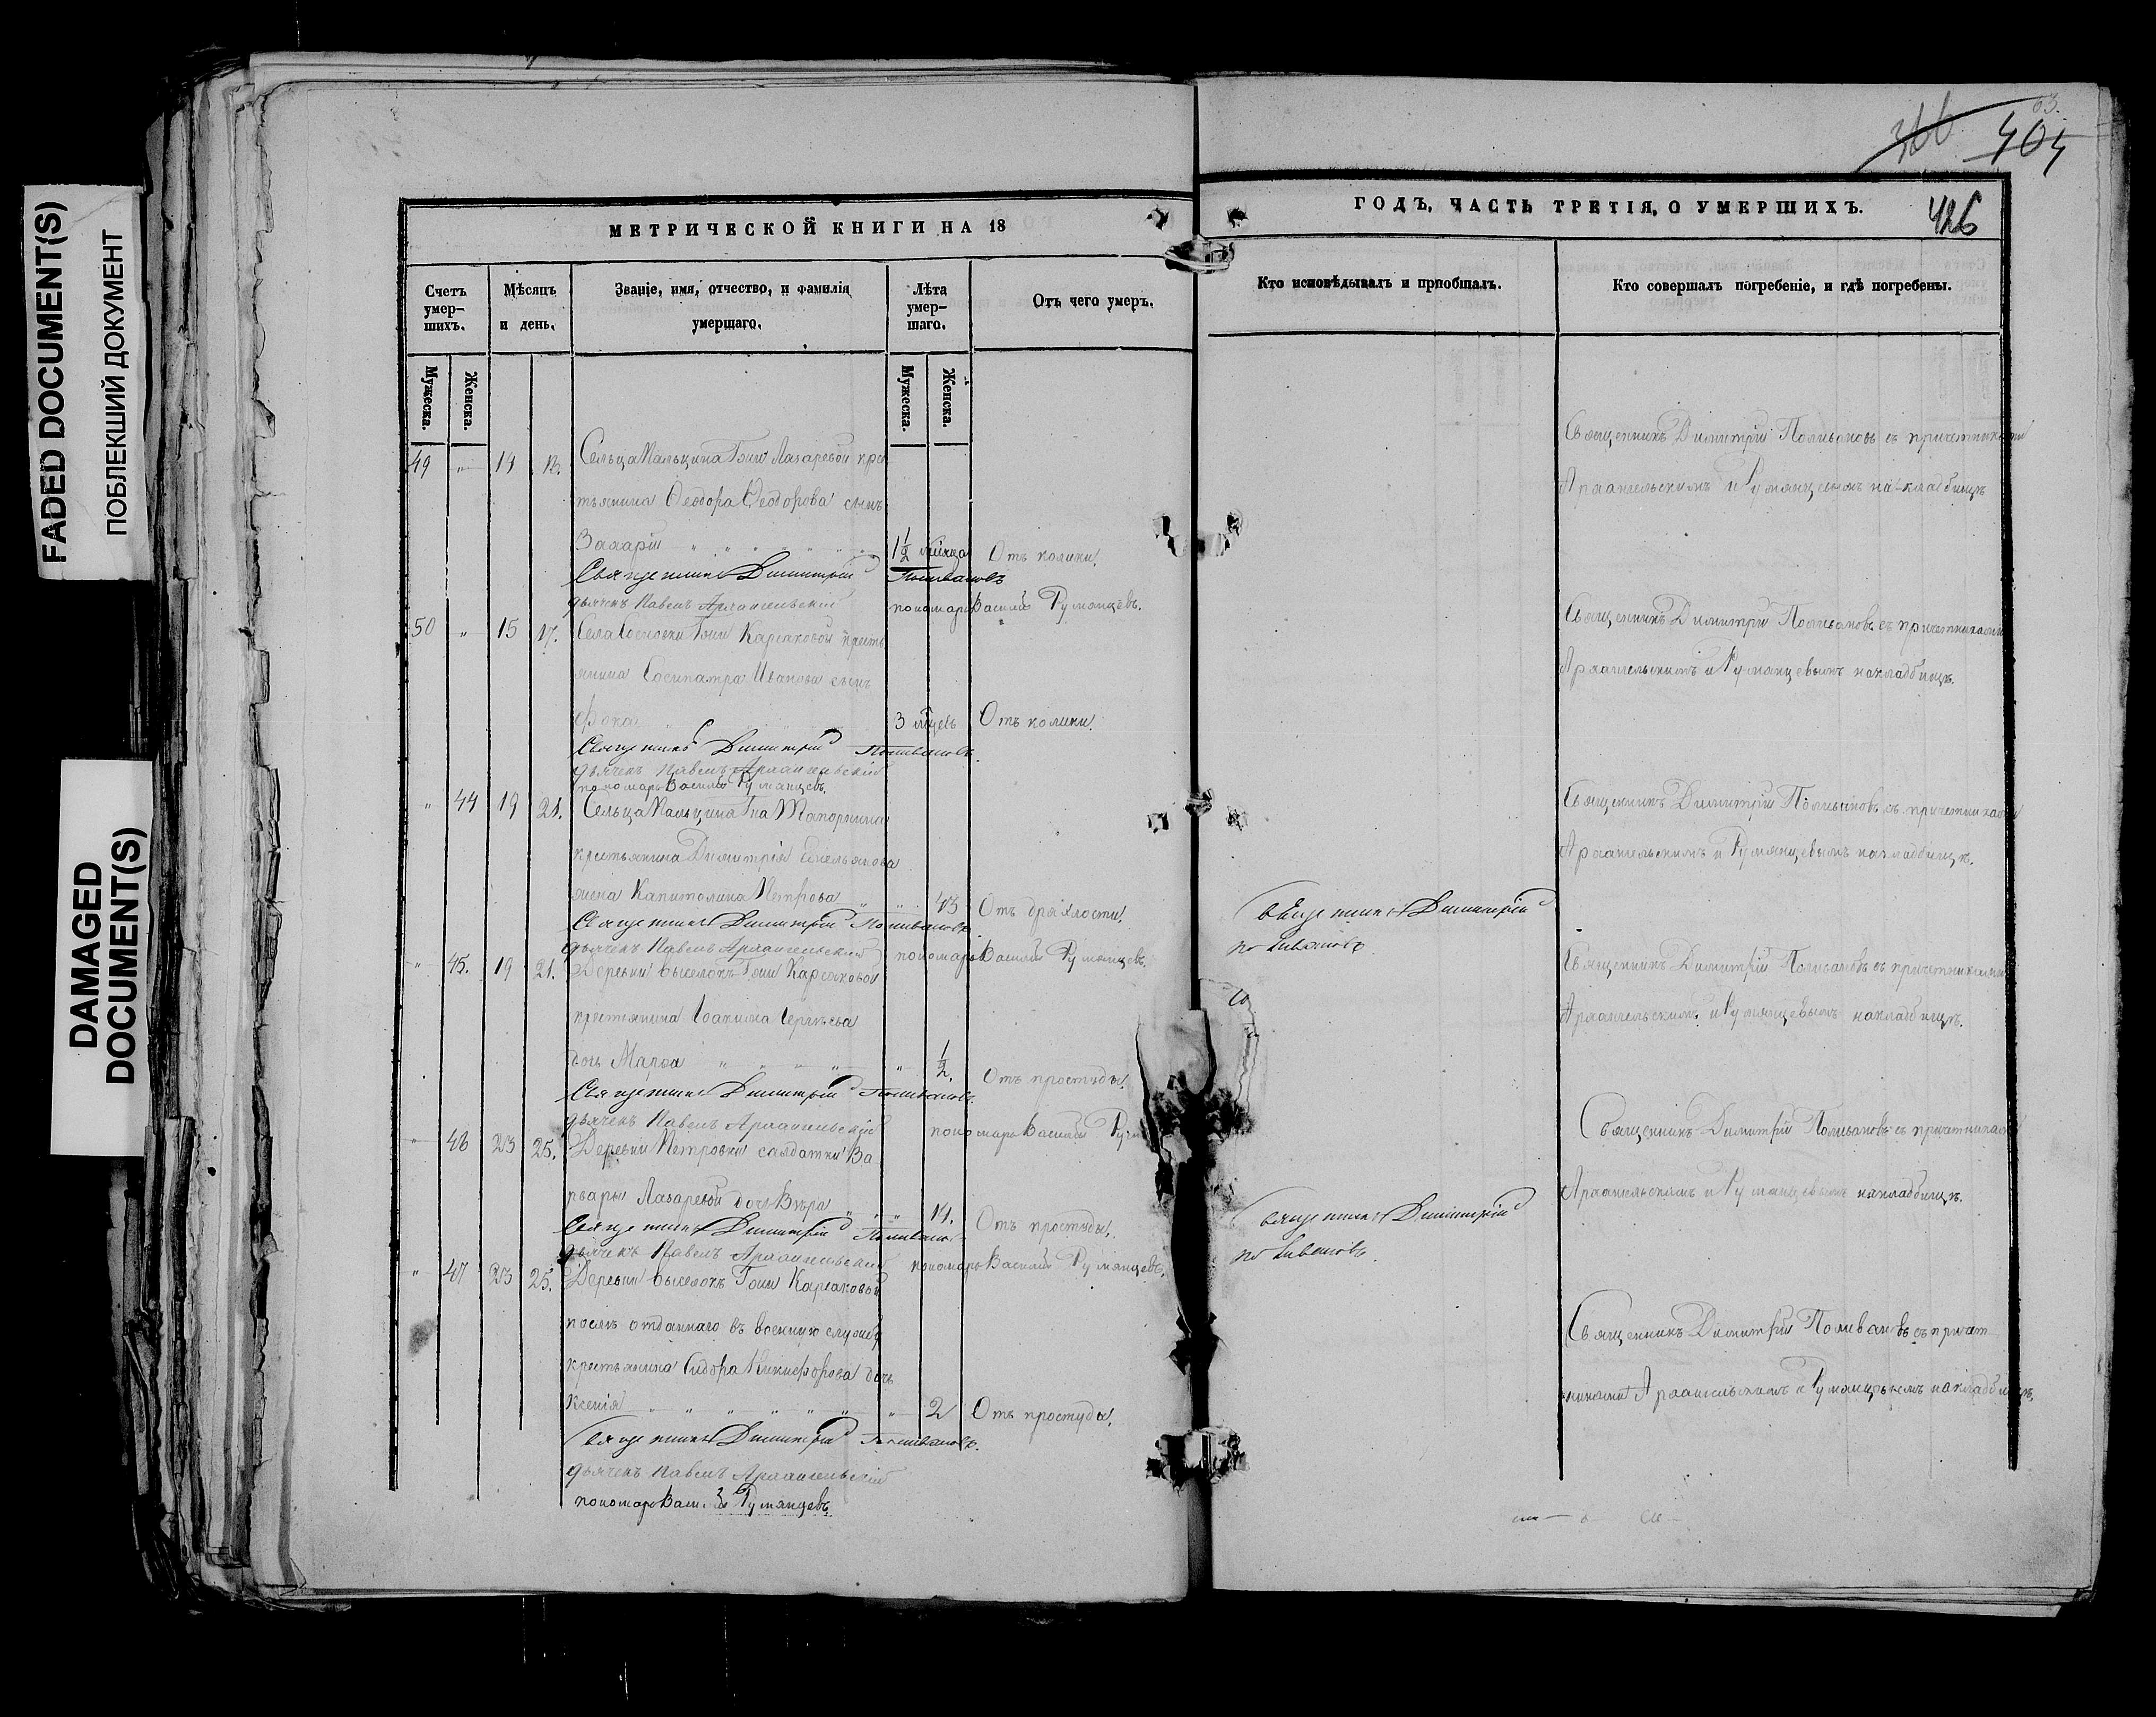 FADED DOCUMENT(S)
ПОБЛЕКШИЙ ДОКУМЕНТ
DAMAGED
DOCUMENT(S)
МЕТРИЧЕСКОЙ КНИГИ НА 18
Счетъ умер-шихъ.
Мѣсяцъ и день.
Званіе, имя, отчество, и фамилія умершаго.
Лѣта умер-шаго.
Отъ чего умеръ.
Мужеска.
Женска.
Мужеска.
Женска.
49 " 14 Сельца Пальцина Гжи Лазаревой крес
тьянина Ѳеодора Ѳеодорова сынъ
Захарій 1½ мѣсяца Отъ колики.
Священникъ Димитрій Поливановъ
дьячекъ Павелъ Архангельскій пономарь Василій Румянцевъ.
50 " 15 17. Села Гжи Карсаковой кресть
янина Сосипатра Иванова сынъ
Фока 3 мцевъ Отъ колики.
Священникъ Димитрій Поливановъ
дьячекъ Павелъ Архангельскій
пономарь Василій Румянцевъ.
" 44 19 21. Сельца Пальцина Гна Топорнина
крестьянина Димитрія Емельянова
жена Капитолина Петрова " 43 Отъ дряхлости.
Священникъ Димитрій Поливановъ
дьячекъ Павелъ Архангельскій пономарь Василій Румянцевъ.
" 45. 19 21. Деревни Выселокъ Гжи Карсаковой
крестьянина Іоакима Сергѣева
дочь Марѳа " " " " " ½. Отъ простуды.
Священникъ Димитрій Поливановъ.
дьячекъ Павелъ Архангельскій пономарь Василій
" 46 23 25. Деревни Петровки салдатки Ва
рвары Лазаревой дочь Вѣра " " 14. Отъ простуды.
Священникъ Димитрій
дьячекъ Павелъ Архангельскій пономарь Василій Румянцевъ.
" 47 23 25. Деревни Выселокъ Гжи Карсаковой
послѣ отданнаго въ военную службу
крестьянина Сидора Никифорова дочь
Ксенія " " " " " " " 2 Отъ простуды.
Священникъ Димитрій Поливановъ.
дьячекъ Павелъ Архангельскій
пономарь Румянцевъ.
63.
366
404
ГОДЪ, ЧАСТЬ ТРЕТІЯ, О УМЕРШИХЪ.
426
Кто исповѣдывалъ и пріобщалъ.
Кто совершалъ погребеніе, и гдѣ погребены.
Священникъ Димитрій Поливановъ съ причетниками
Архангельскимъ и Румянцевымъ на кладбищѣ
Священникъ Димитрій Поливановъ съ причетниками
Архангельскимъ и Румянцевымъ на кладбищѣ.
Священникъ Димитрій Поливановъ съ причетниками
Архангельскимъ и Румянцевымъ на кладбищѣ.
Священникъ Димитрій
Поливановъ
Священникъ Димитрій Поливановъ съ причетниками
Архангельскимъ и Румянцевымъ на кладбищѣ.
Священникъ Димитрій Поливановъ съ причетниками
Архангельскимъ и Румянцевымъ на кладбищѣ.
Священникъ Димитрій
Поливановъ.
Священникъ Димитрій Поливановъ съ причет
никами Архангельскимъ и Румянцевымъ на кладбищѣ.